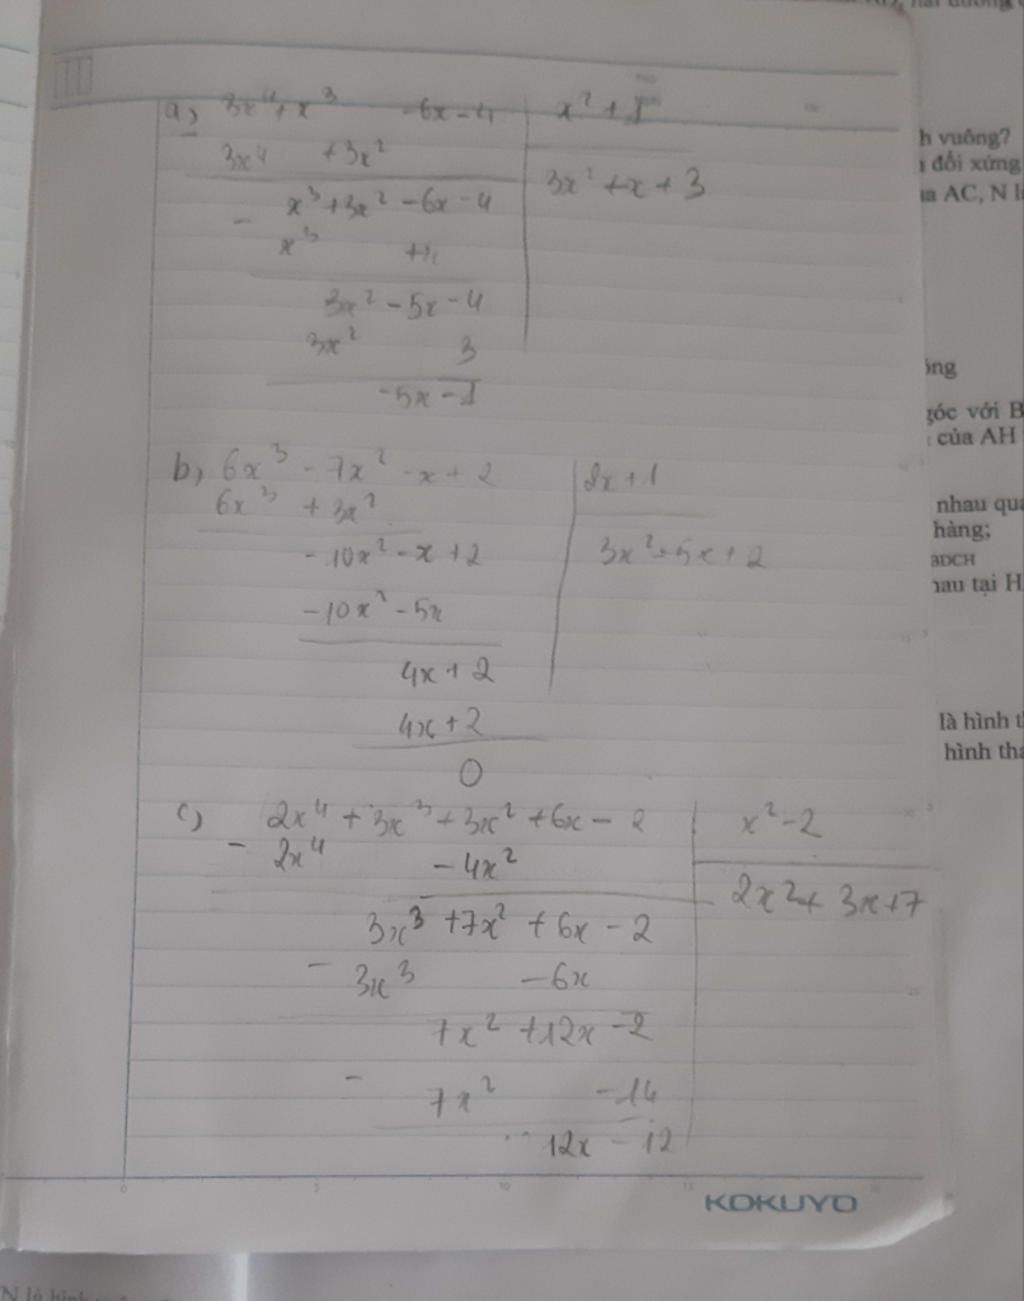 a) 3x⁴ + x³ - 6x - 4 | x² + 1
3x⁴ + 3x² | 3x² + x + 3
- x³ + 3x² - 6x - 4
x³ + x
3x² - 5x - 4
3x² 3
-5x - 1
b) 6x³ - 7x² - x + 2 | 2x + 1
6x³ + 3x² | 3x² + 5x + 2
- 10x² - x + 2
- 10x² - 5x
4x + 2
4x + 2
0
c) 2x⁴ + 3x³ + 3x² + 6x - 2 | x² - 2
- 2x⁴ - 4x² | 2x² + 3x + 7
3x³ + 7x² + 6x - 2
- 3x³ - 6x
7x² + 12x - 2
- 7x² - 14
12x - 12
KOKUYO
h vuông?
đối xứng
AC, N
góc với B
của AH
nhau qua
hàng;
BDCH
nhau tại H
là hình
hình